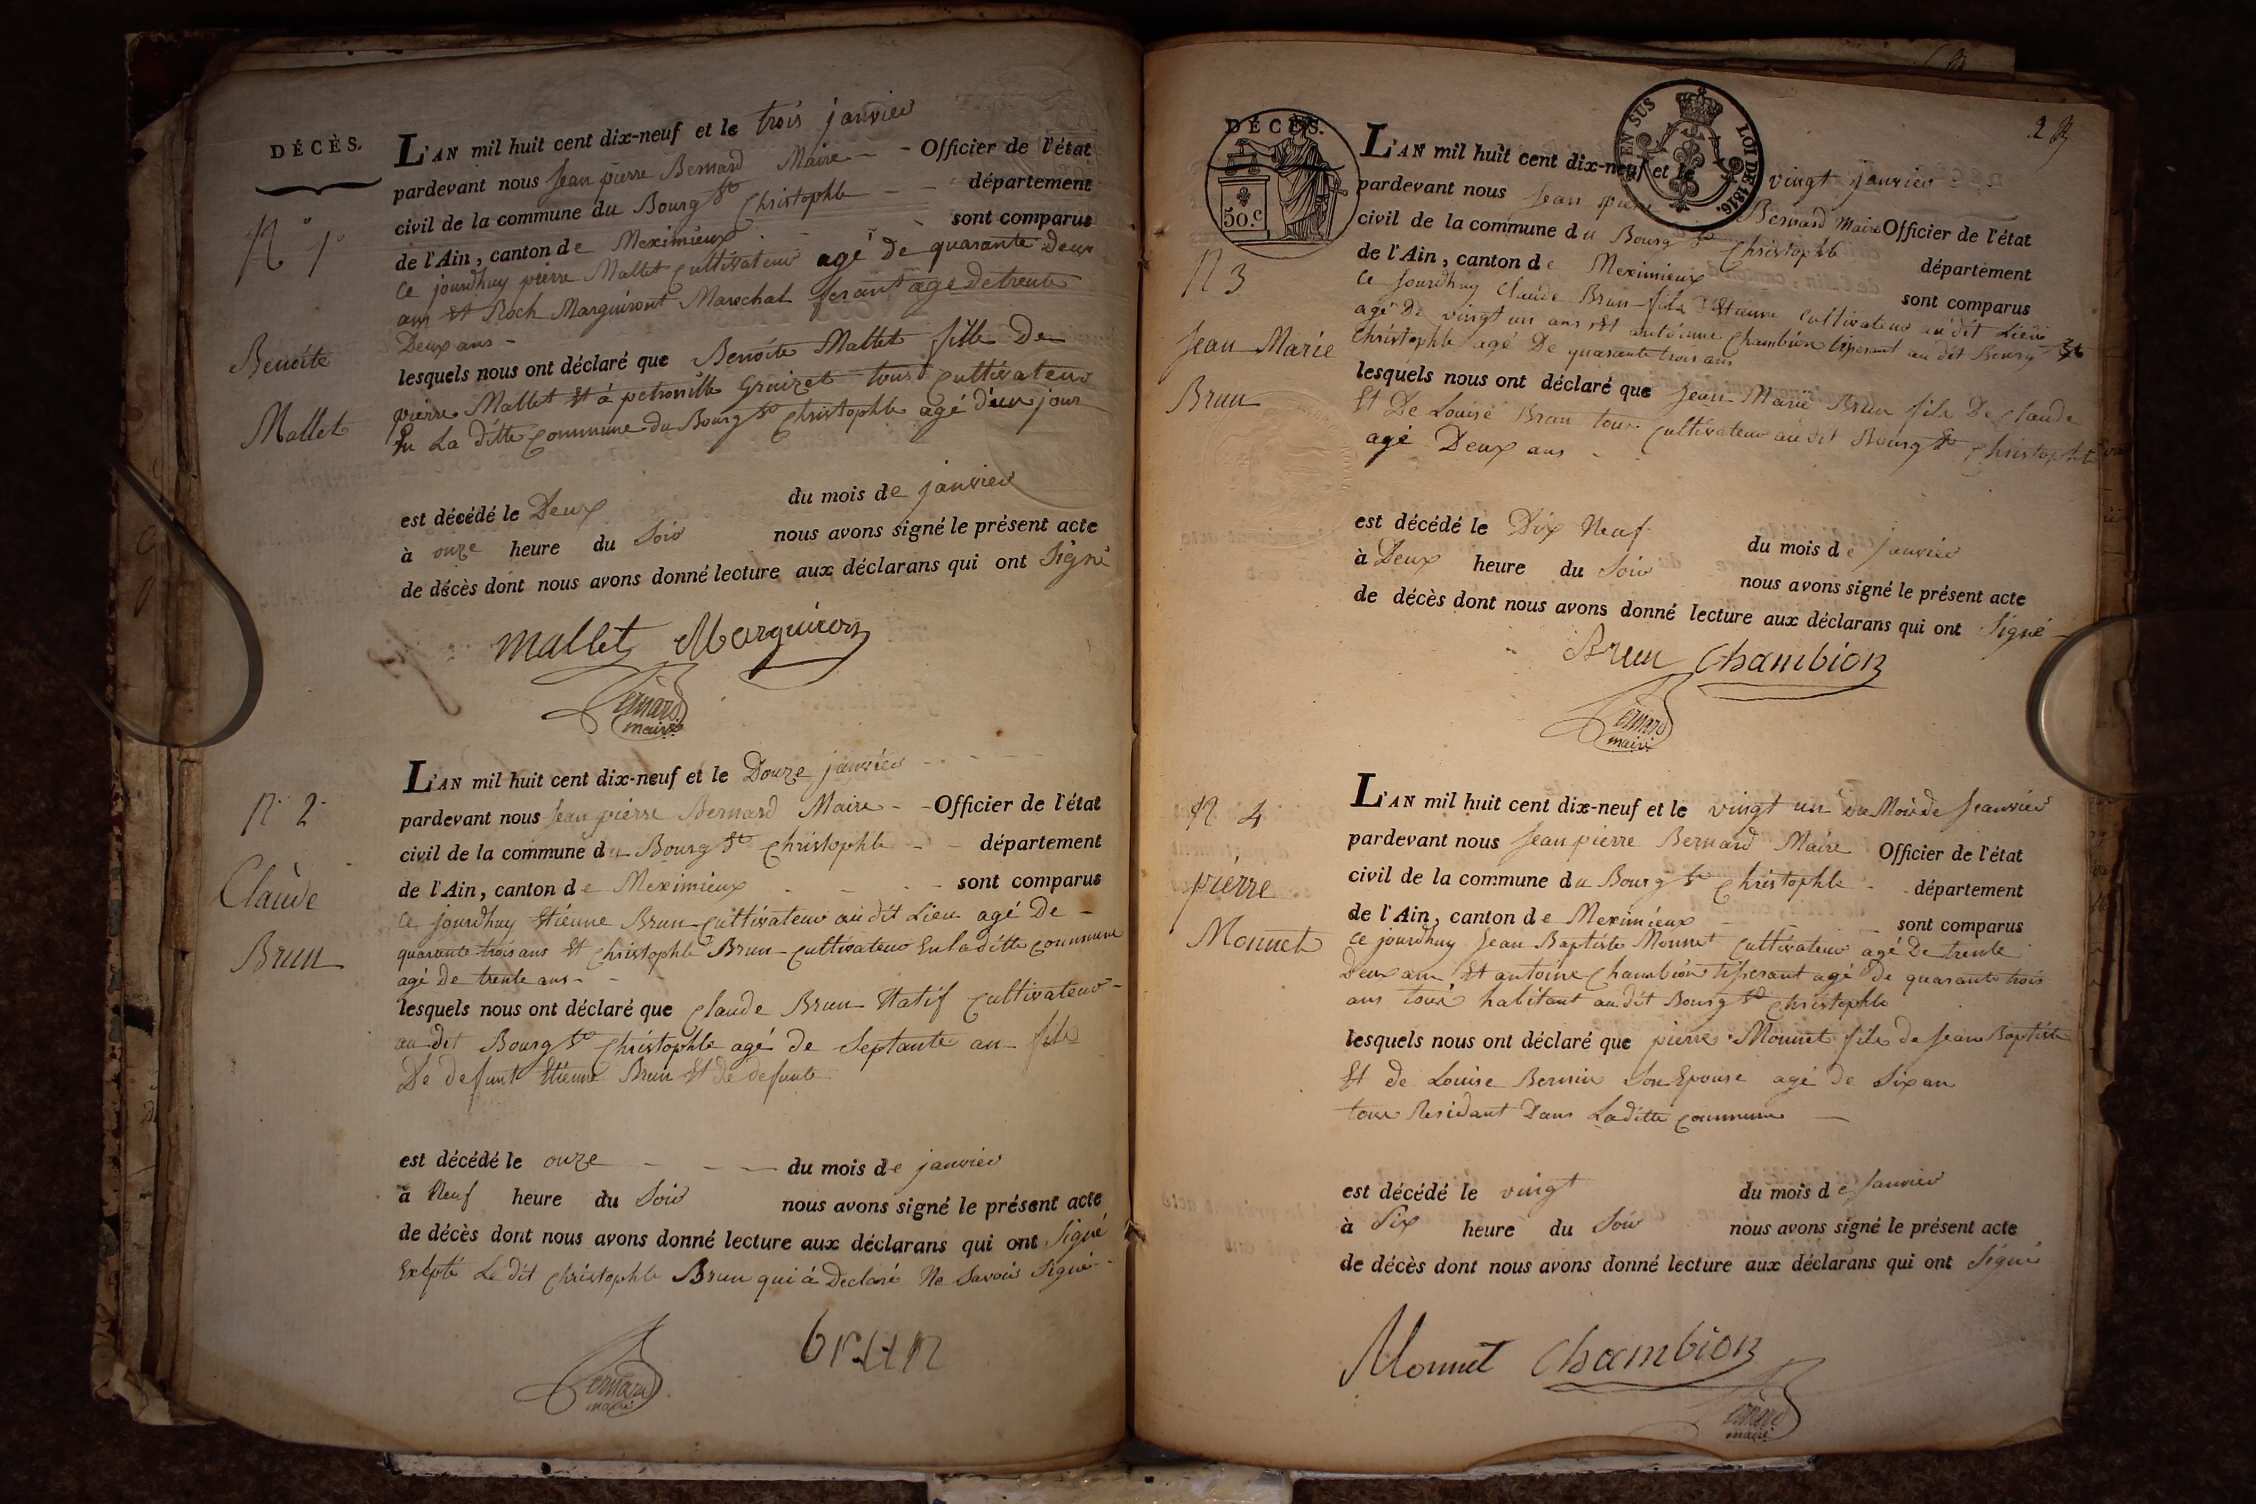 DÉCÈS.
L'AN mil huit cent dix-neuf et le trois janvier
pardevant nous Jean pierre Bernard Maire Officier de l'état
civil de la commune du Bourg St Christophle département
de l'Ain, canton de Meximieux sont comparus
N° 1
ce jourdhuy pierre Mallet cultivateur agé de quarante Deux
ans Et Roch Marguiront Marechal ferant agé de trente
Deux ans
Benoite
Mallet
lesquels nous ont déclaré que Benoite Mallet fille De
pierre Mallet Et à petronille Gruizet tous cultivateur
En La ditte commune du Bourg St Christophle agé d'un jour
est décédé le Deux du mois de janvier
à onze heure du Soir nous avons signé le présent acte
de décès dont nous avons donné lecture aux déclarans qui ont Signé
Mallet Marguiron
Bernard
maire
L'AN mil huit cent dix-neuf et le Douze janvier
pardevant nous Jean pierre Bernard Maire Officier de l'état
civil de la commune du Bourg St Christophle département
de l'Ain, canton de Meximieux sont comparus
N° 2
Claude
Brun
ce jourdhuy Etienne Brun cultivateur au dit Lieu agé De
quarante trois ans Et Christophle Brun cultivateur En la ditte commune
agé de trente ans
lesquels nous ont déclaré que Claude Brun Natif cultivateur
au dit Bourg St Christophle agé de Septante an fils
De defunt Etienne Brun Et de defunte
est décédé le onze du mois de janvier
à Neuf heure du Soir nous avons signé le présent acte
de décès dont nous avons donné lecture aux déclarans qui ont Signé
Exepté Le dit Christophle Brun qui à Declaré Ne Savoir Signé
brun
Bernard
maire
2
DÉCÈS.
50.c
EN SUS
LOI DE 1816.
L'AN mil huit cent dix-neuf et le vingt janvier
pardevant nous Jean pierre Bernard Maire Officier de l'état
civil de la commune du Bourg St Christophle département
de l'Ain, canton de Meximieux sont comparus
N 3
Jean Marie
Brun
ce jourdhuy Claude Brun fils d'Etienne cultivateur au dit Lieu
agé De vingt un ans Et antoinne Chambion tiserant au dit Bourg St
Christophle agé De quarante trois ans
lesquels nous ont déclaré que Jean Marie Brun fils De Claude
Et De Louise Brun tous cultivateur au dit Bourg St Christophle
agé Deux ans
est décédé le Dix Neuf du mois de janvier
à Deux heure du Soir nous avons signé le présent acte
de décès dont nous avons donné lecture aux déclarans qui ont Signé
Brun Chambion
Bernard
maire
L'AN mil huit cent dix-neuf et le vingt un du Mois de Janvier
pardevant nous Jean pierre Bernard Maire Officier de l'état
civil de la commune du Bourg St Christophle département
de l'Ain, canton de Meximieux sont comparus
N 4
pierre
Monnet
ce jourdhuy Jean Baptiste Monnet cultivateur agé De trente
Deux ans Et antoine Chambion tiserant agé De quarante trois
ans tous habitant au dit Bourg St Christophle
lesquels nous ont déclaré que pierre Monnet fils de Jean Baptiste
Et de Louise Bernin Son Epouse agé de Six an
tous Residant Dans La ditte commune
est décédé le vingt du mois de Janvier
à Six heure du Soir nous avons signé le présent acte
de décès dont nous avons donné lecture aux déclarans qui ont Signé
Monnet Chambion
Bernard
maire